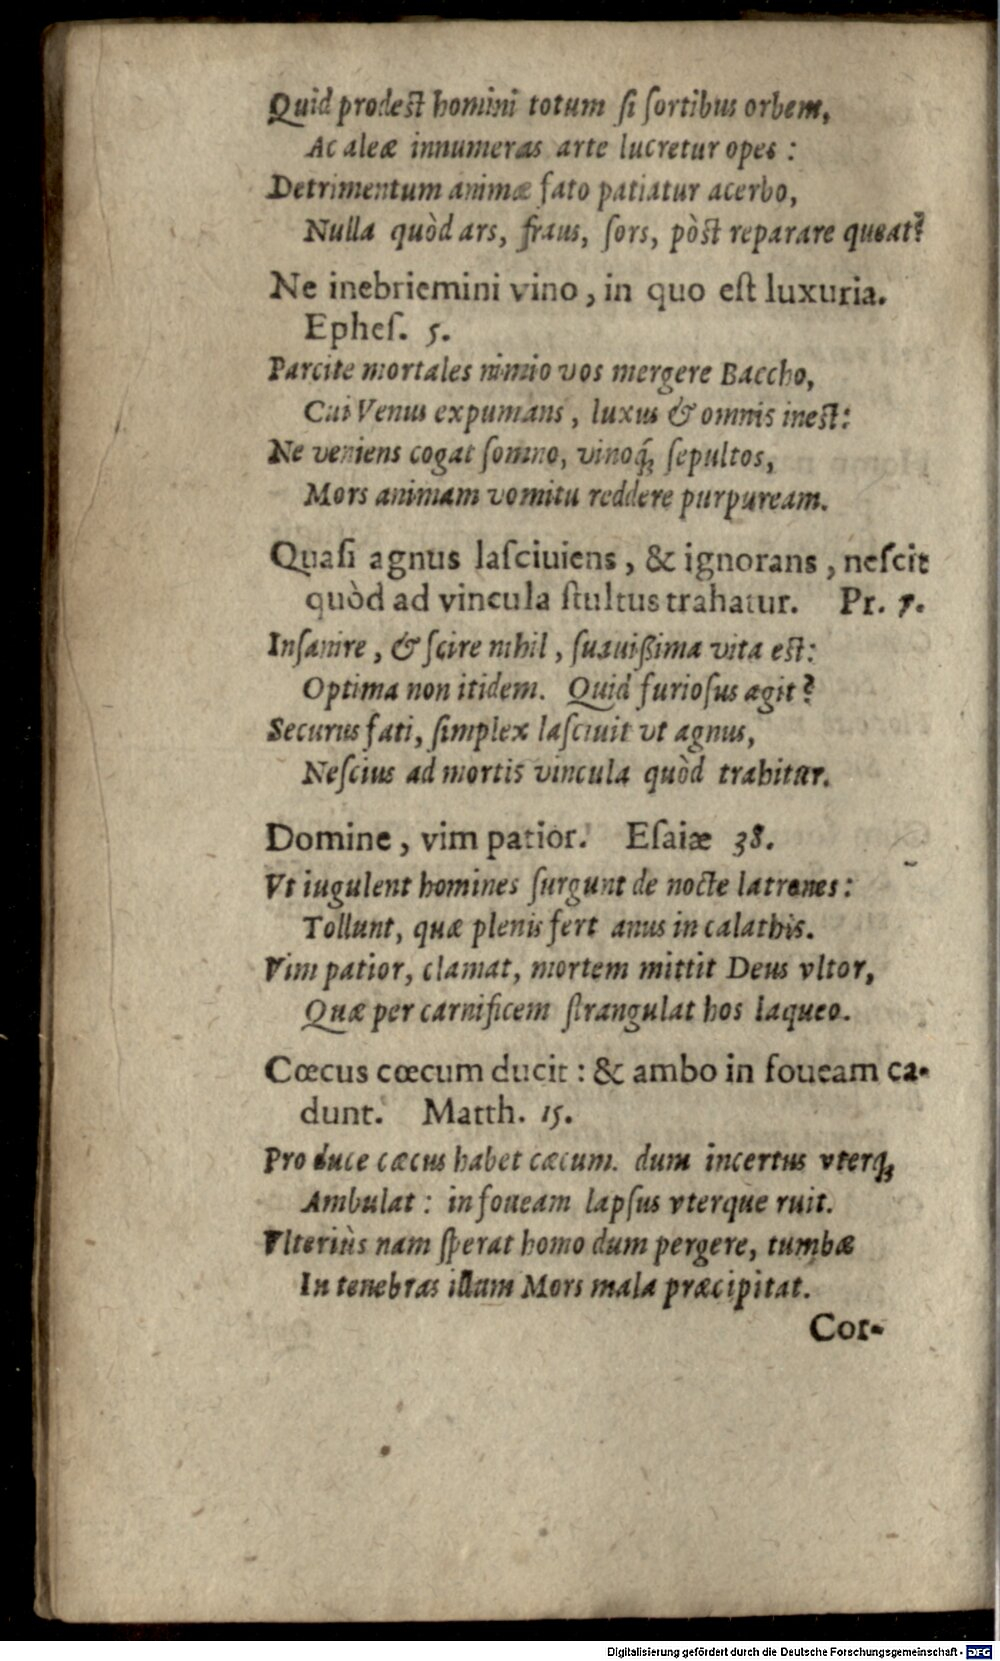 Quid prodeſt homini totum ſi ſortibus orbem,
Ac aleæ innumeras arte lucretur opes :
Detrimentum animæ fato patiatur acerbo,
Nulla quòd ars, fraus, ſors, pòſt reparare queat?
Ne inebriemini vino, in quo eſt luxuria.
Epheſ. 5.
Parcite mortales nimio vos mergere Baccho,
Cui Venus expumans, luxus & omnis ineſt:
Ne veniens cogat ſomno, vinoq́; ſepultos,
Mors animam vomitu reddere purpuream.
Quaſi agnus laſciuiens, & ignorans, neſcit
quòd ad vincula ſtultus trahatur. Pr. 7.
Inſanire, & ſcire nihil, ſuauißima vita eſt:
Optima non itidem. Quid furioſus agit?
Securus fati, ſimplex laſciuit vt agnus,
Neſcius ad mortis vincula quòd trahitur.
Domine, vim patior. Eſaiæ 38.
Vt iugulent homines ſurgunt de nocte latrones:
Tollunt, quæ plenis fert anus in calathis.
Vim patior, clamat, mortem mittit Deus vltor,
Quæ per carnificem ſtrangulat hos laqueo.
Cœcus cœcum ducit : & ambo in foueam ca-
dunt. Matth. 15.
Pro duce cæcus habet cæcum. dum incertus vterq́;
Ambulat : in foueam lapſus vterque ruit.
Vlteriùs nam ſperat homo dum pergere, tumbæ
In tenebras illum Mors mala præcipitat.
Cor-
Digitalisierung gefördert durch die Deutsche Forschungsgemeinschaft - DFG